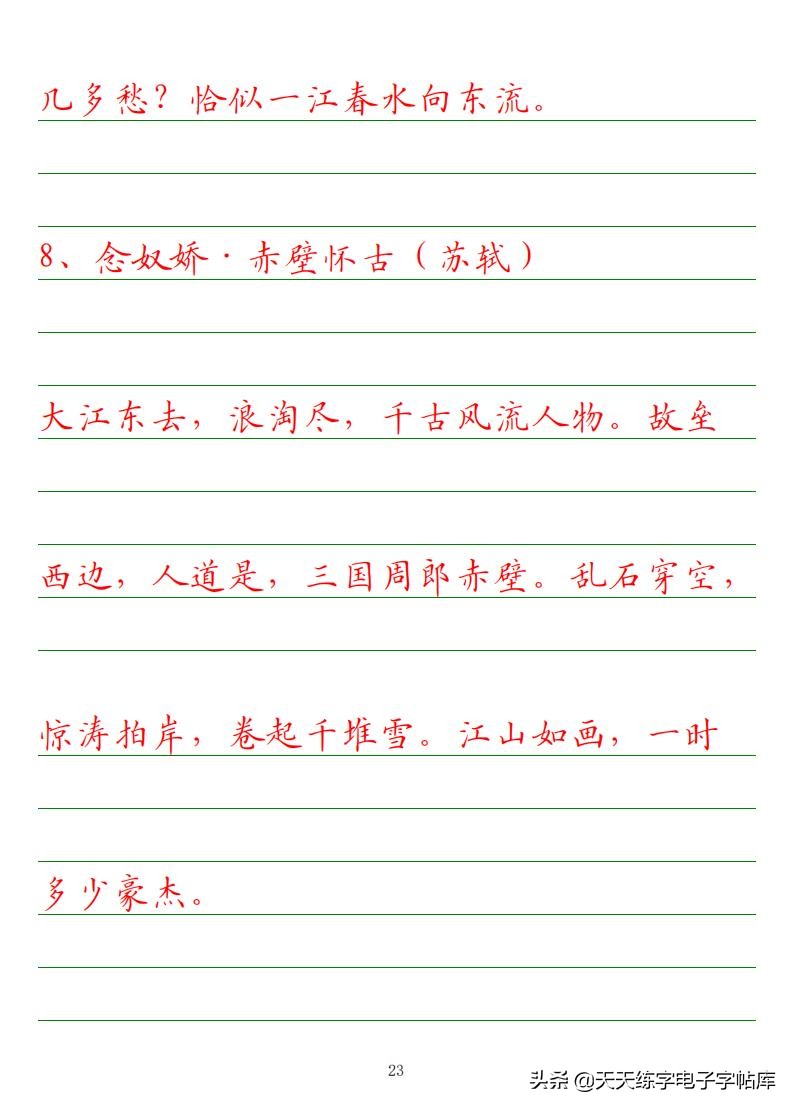 几多愁？恰似一江春水向东流。
8、念奴娇·赤壁怀古（苏轼）
大江东去，浪淘尽，千古风流人物。故垒
西边，人道是，三国周郎赤壁。乱石穿空，
惊涛拍岸，卷起千堆雪。江山如画，一时
多少豪杰。
23
头条 @天天练字电子字帖库